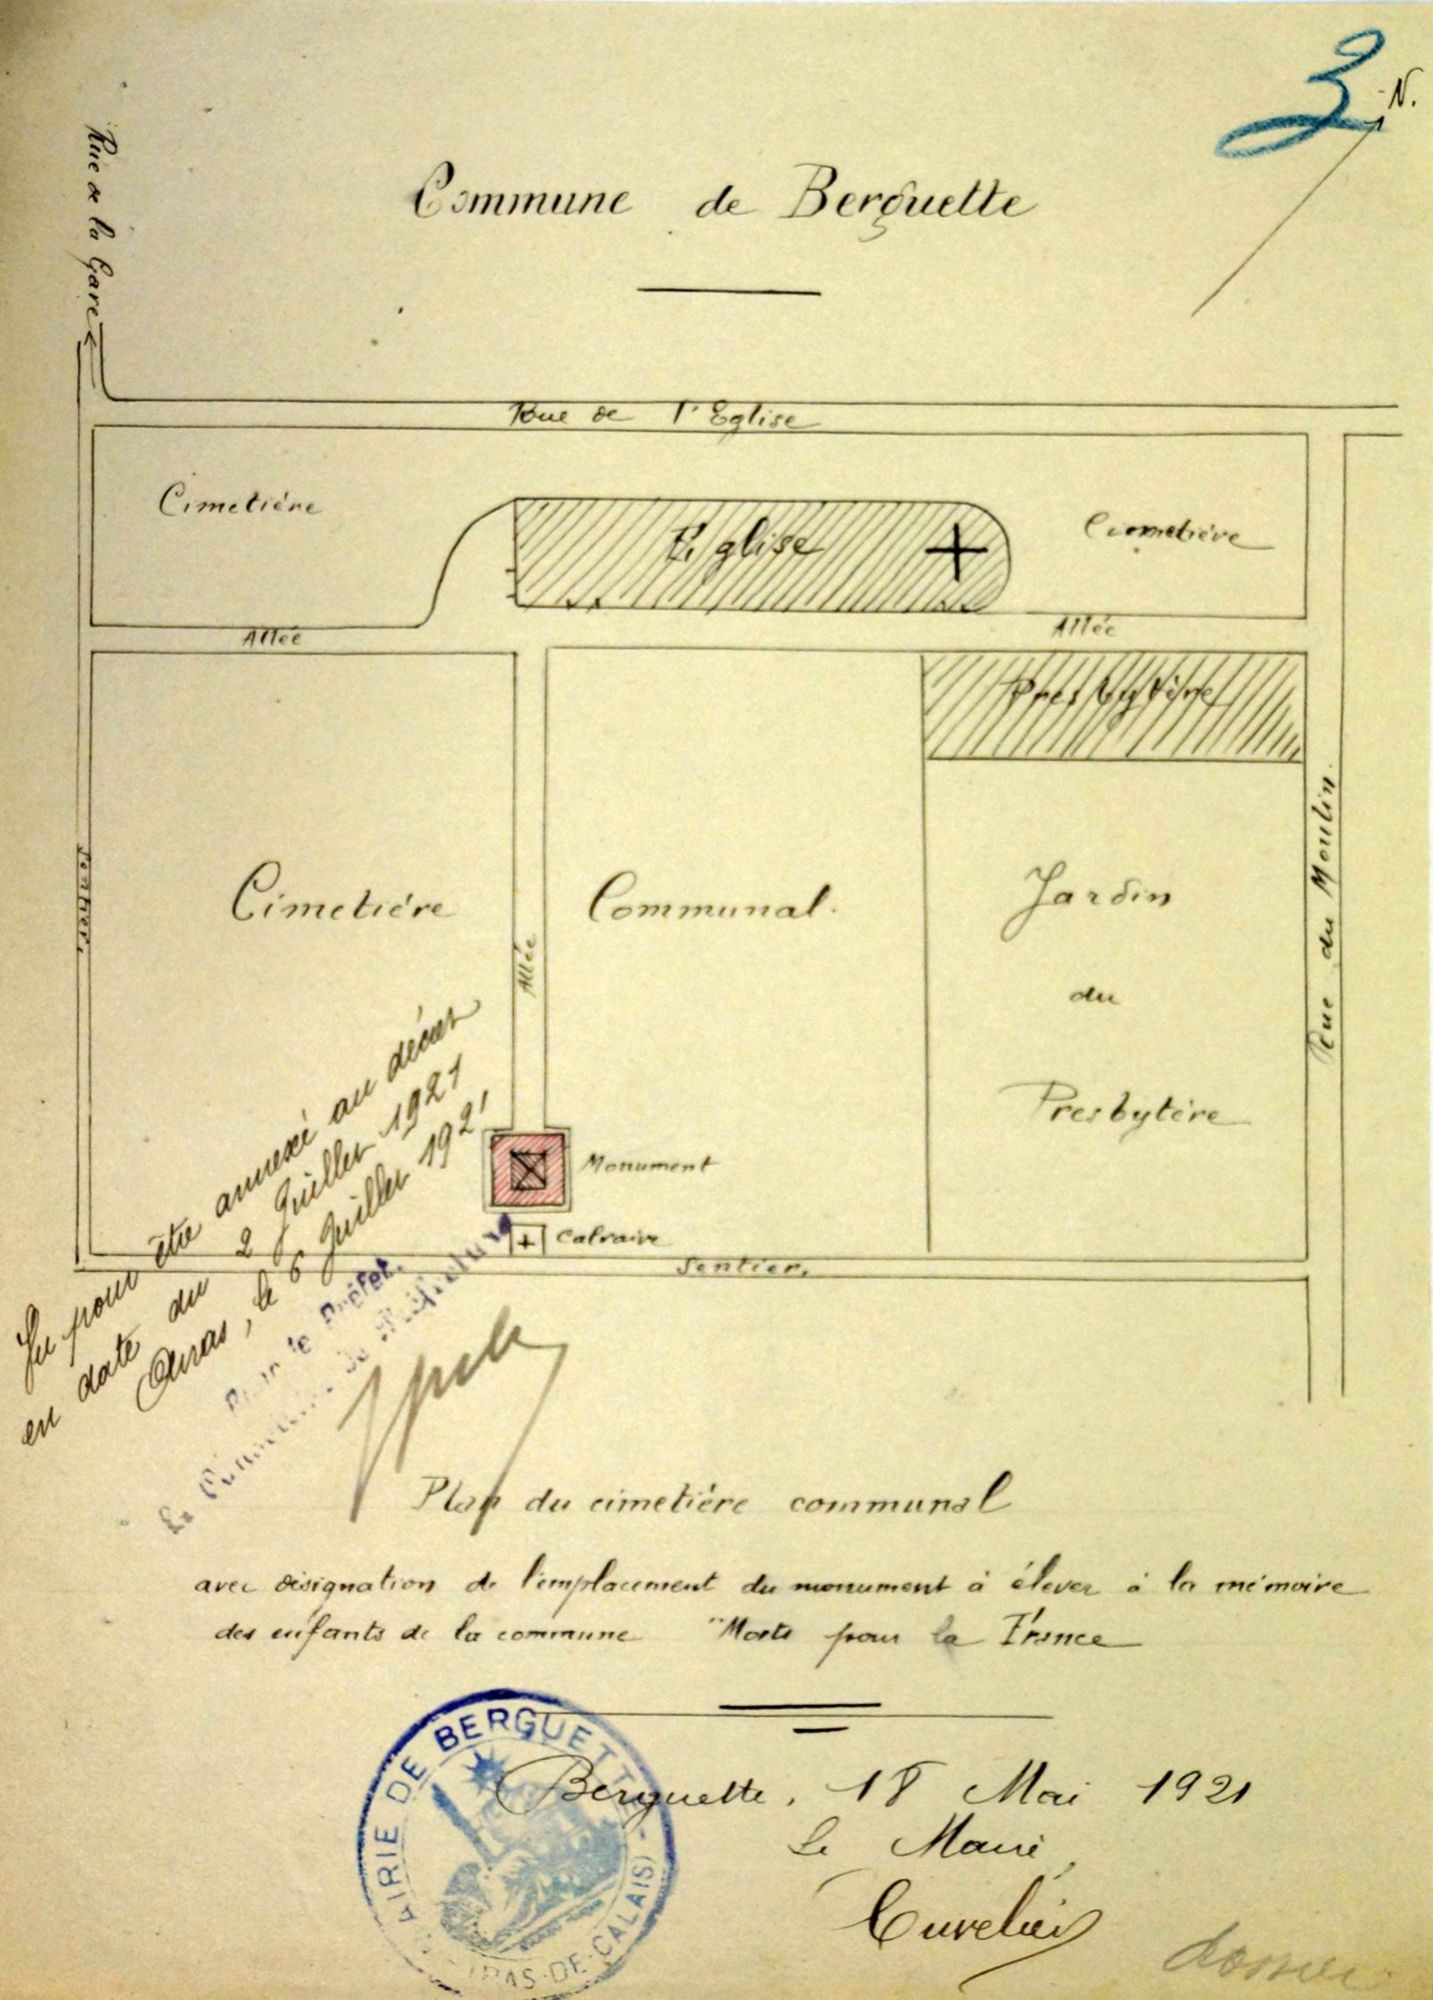 3
N.
Rue de la Gare
Commune de Berguette
Rue de l'Eglise
Cimetière
Eglise
Cimetière
Allée
Allée
Presbytère
Sentier.
Cimetière
Allée
Communal.
Jardin
du
Presbytère
Rue du Moulin.
Monument
Calvaire
Sentier.
Vu pour être annexé au décret
en date du 2 Juillet 1921
Arras, le 6 Juillet 1921
Pour le Préfet.
Le Conseiller de Préfecture
Plan du cimetière communal
avec désignation de l'emplacement du monument à élever à la mémoire
des enfants de la commune "Morts pour la France
MAIRIE DE BERGUETTE
(PAS-DE-CALAIS)
Berguette, 18 Mai 1921
Le Maire,
Cuvelier
dossier